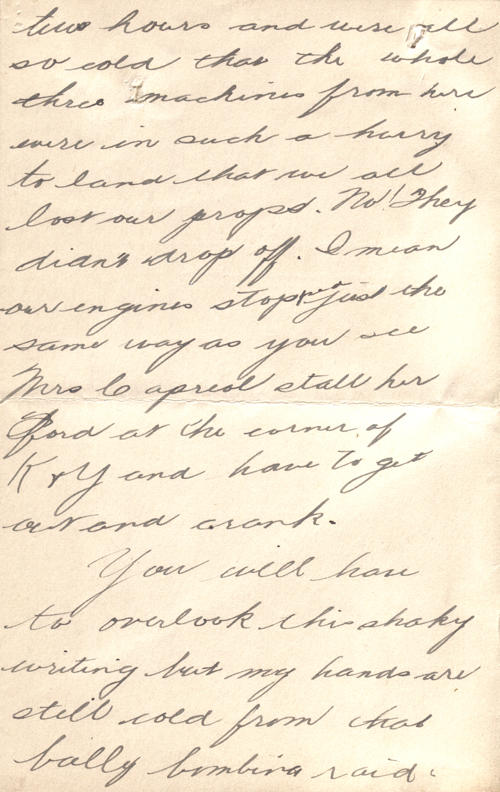 two hours and were all
so cold that the whole
three machines from here
were in such a hurry
to land that we all
lost our props. No! They
didn't drop off. I mean
our engines stopped just the
same way as you see
Mrs Capreol stall her
Ford at the corner of
K & Y and have to get
out and crank.
You will have
to overlook this shaky
writing but my hands are
still cold from that
bally bombing raid.